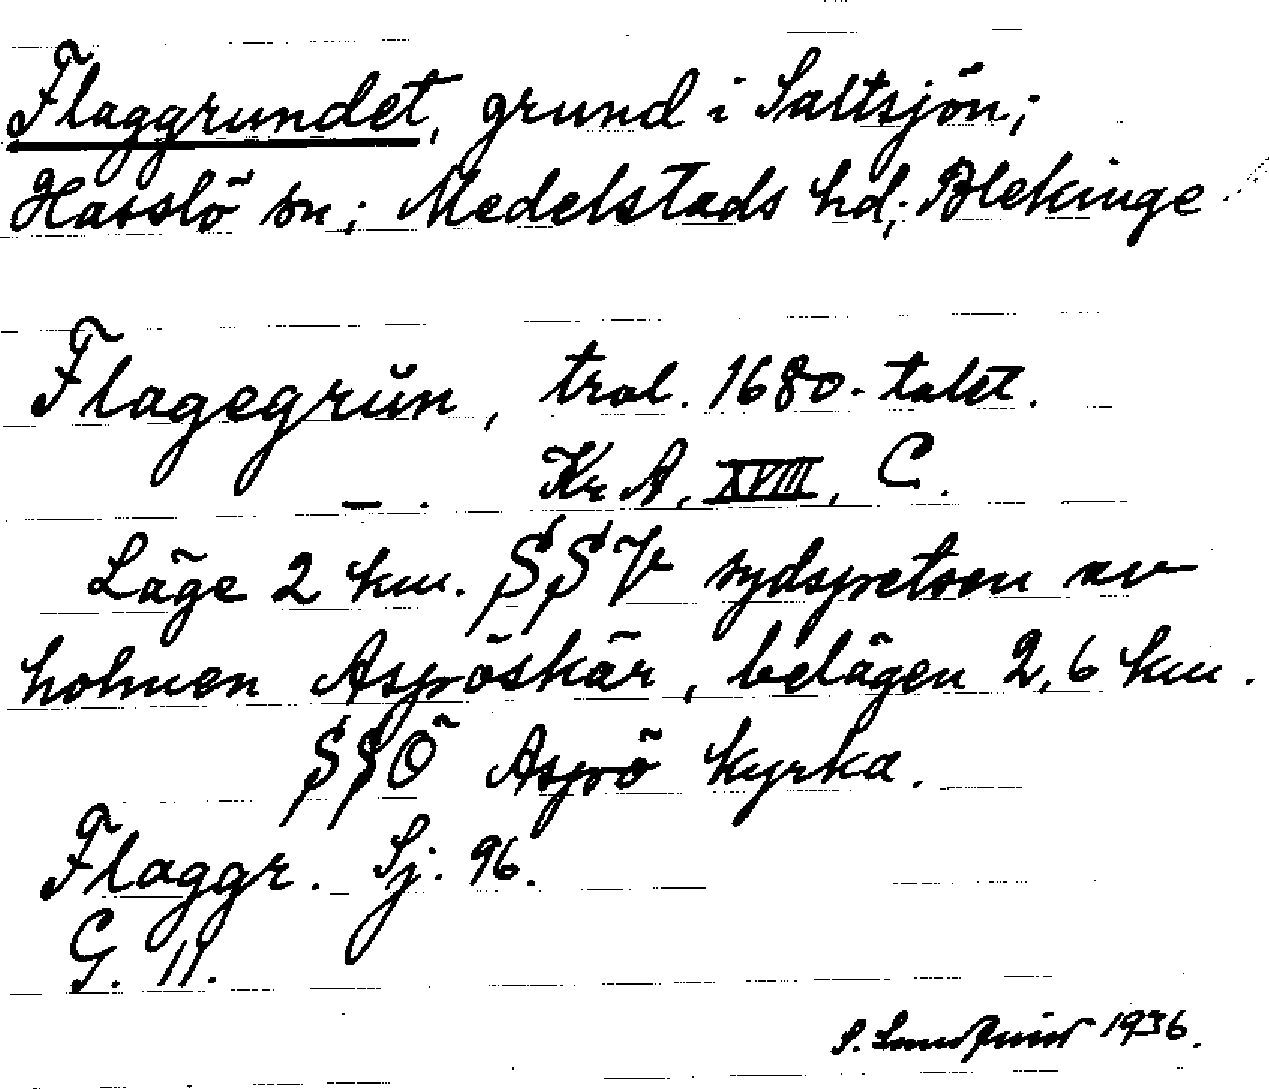 Flaggrundet, grund i Saltsjön;
Hasslö sn; Medelstads hd; Blekinge
Flagegrŭn, trol. 1680-talet.
Kr A, XVIII, C.
Läge 2 km. SSV sydspetsen av
holmen Aspöskär, belägen 2,6 km.
SSÖ Aspö kyrka.
Flaggr. Sj. 96.
G. 11.
S. 1936.